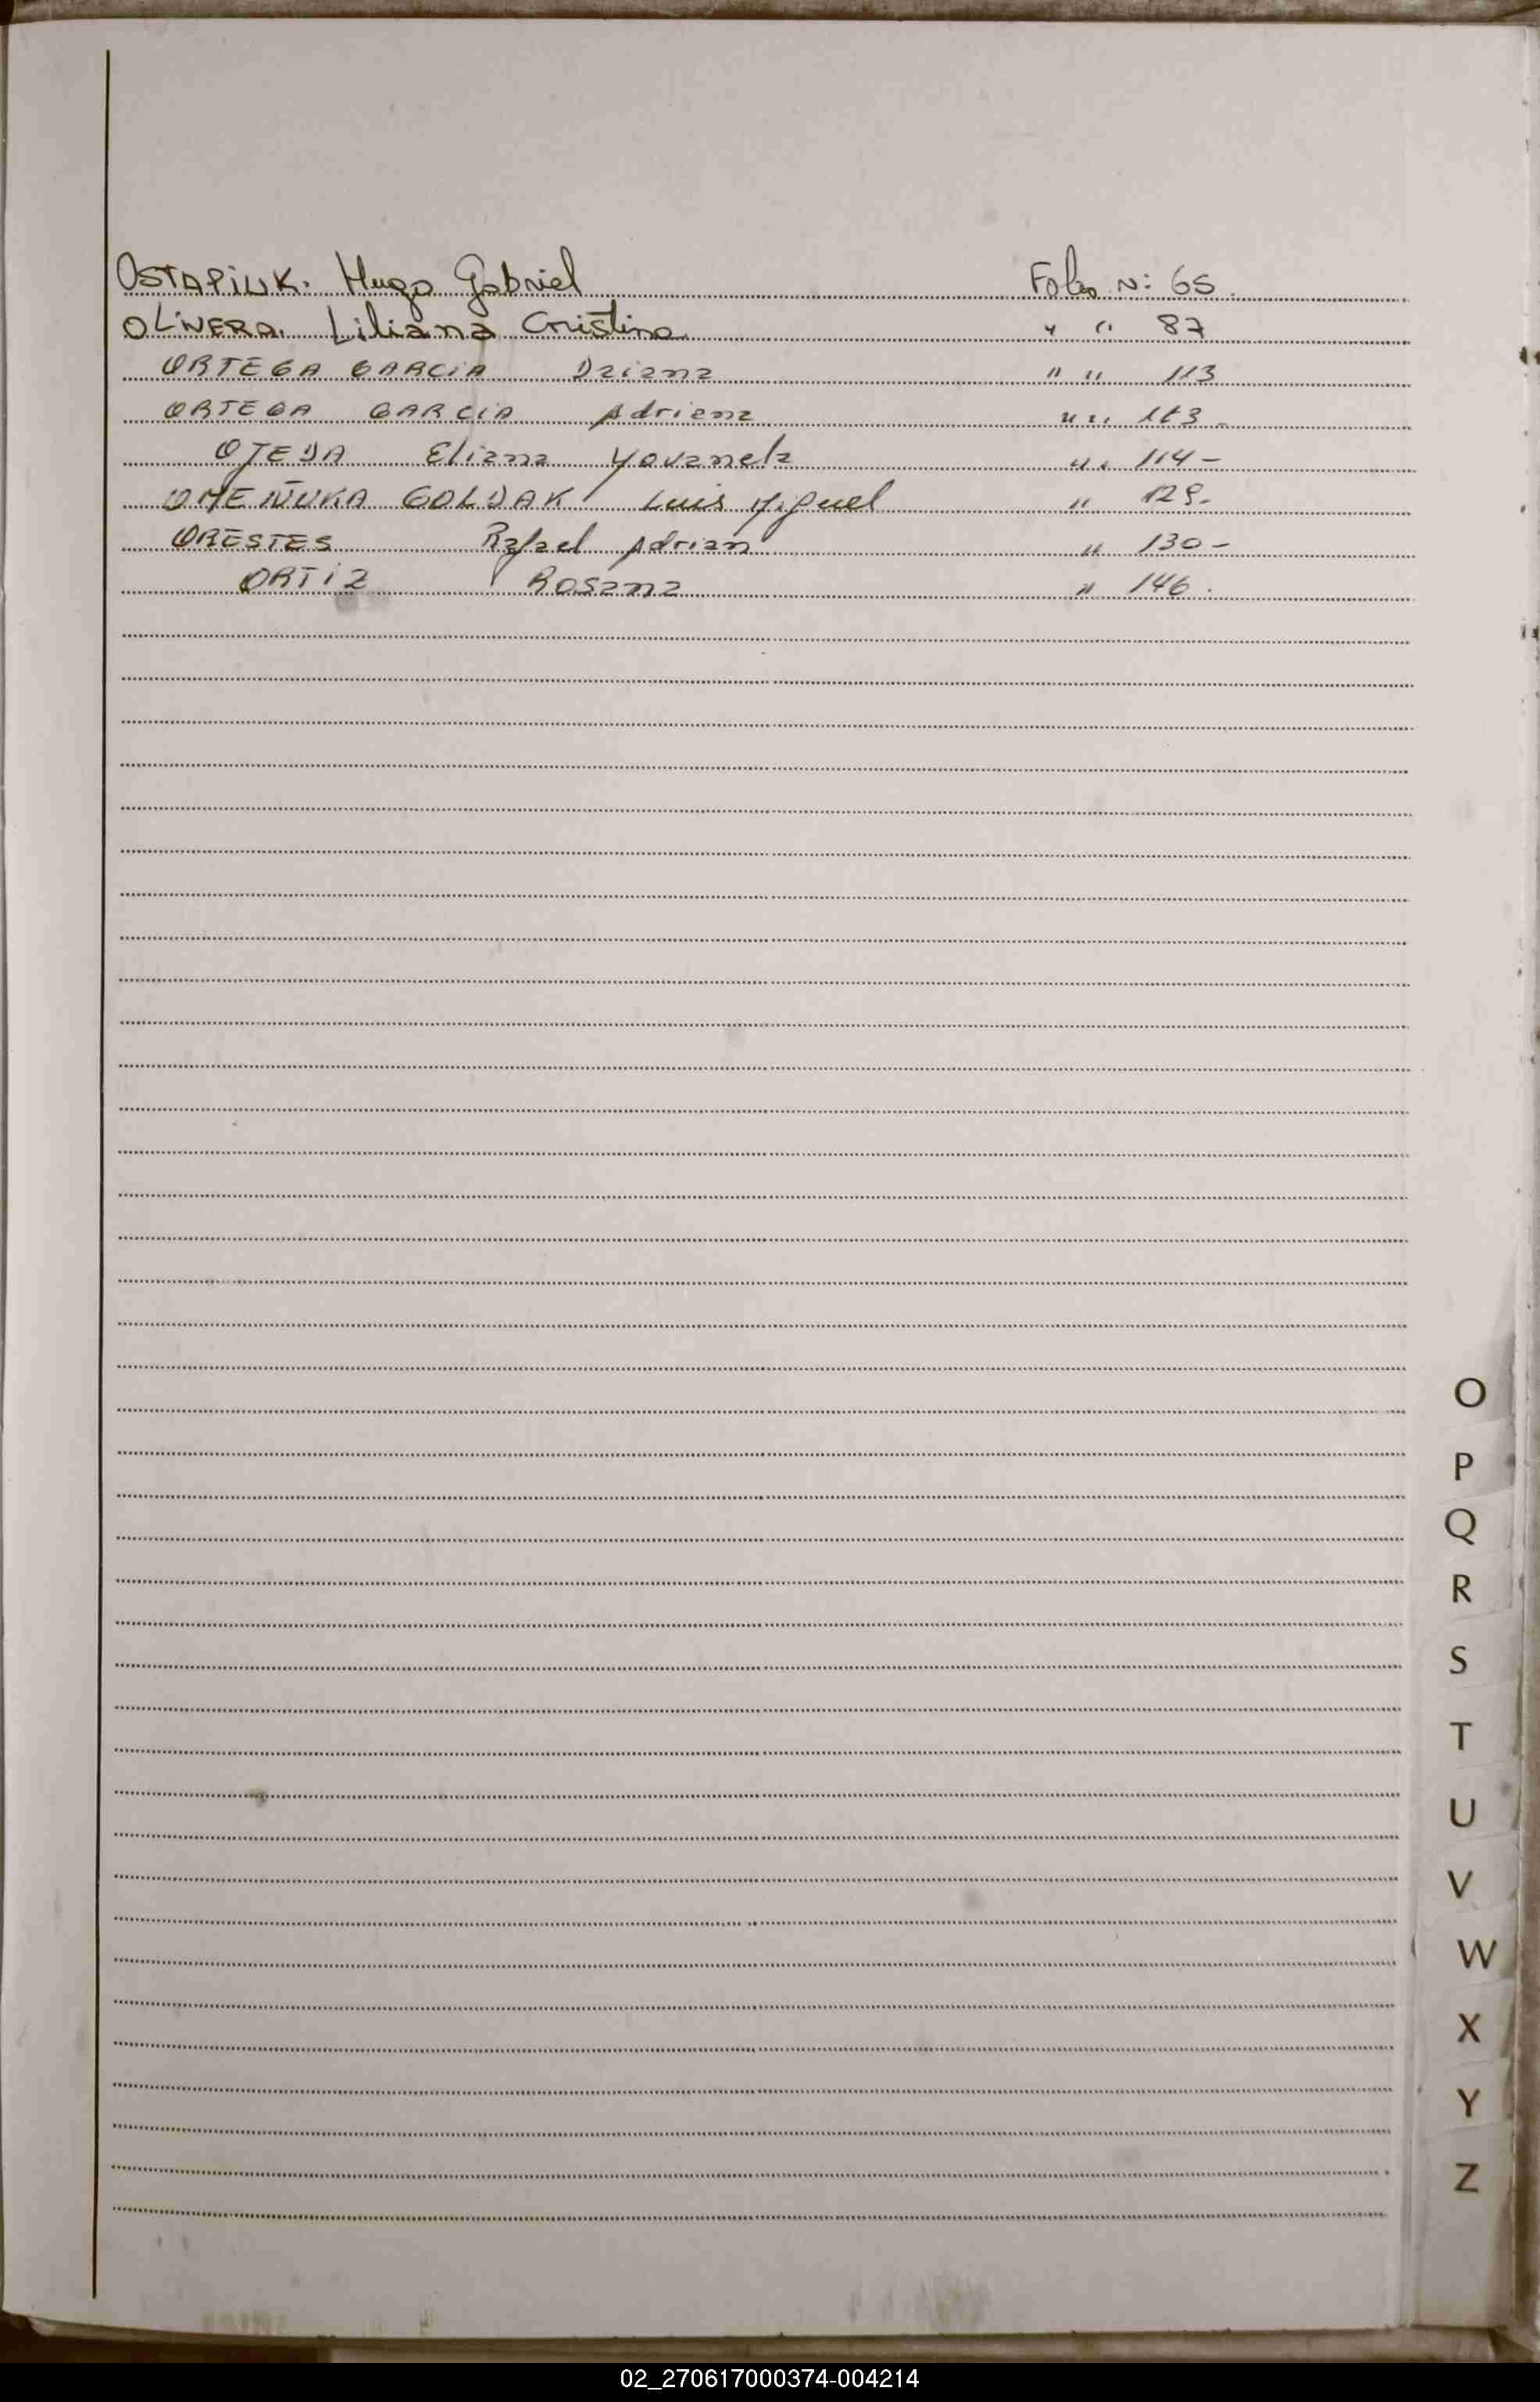 OSTAPIUK. Hugo Gabriel Folio N: 65.
OLIVERA. Liliana Cristina " " 87
ORTEGA GARCIA Daiana " " 113
ORTEGA GARCIA Adriana " " 113-
OJEDA Eliana Yovanela " " 114-
OMEÑUKA GOLDAK Luis Miguel " 129-
ORESTES Rafael Adrian " 130-
ORTIZ Rosana " 146.
O
P
Q
R
S
T
U
V
W
X
Y
Z
02_270617000374-004214